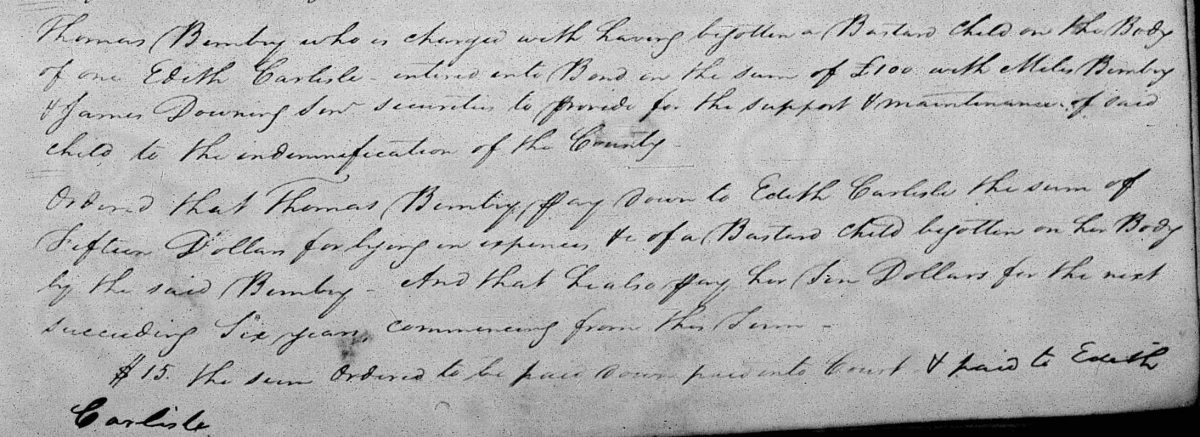 Thomas Bembry who is charged with having begotten a Bastard Child on the Body
of one Edith Carlisle - entered into Bond in the sum of £100 with Miles Bembry
& James Downing Senr securities to provide for the support & maintenance of said
child to the indemnification of the County -
Ordered that Thomas Bembry, pay down to Edith Carlisle the sum of
Fifteen Dollars for lying in expences &c of a Bastard Child begotten on her Body
by the said Bembry - And that he also pay her Ten Dollars for the next
succeeding Six years, commencing from this Term -
$15. the sum Ordered to be paid down paid into Court & paid to Edith
Carlisle